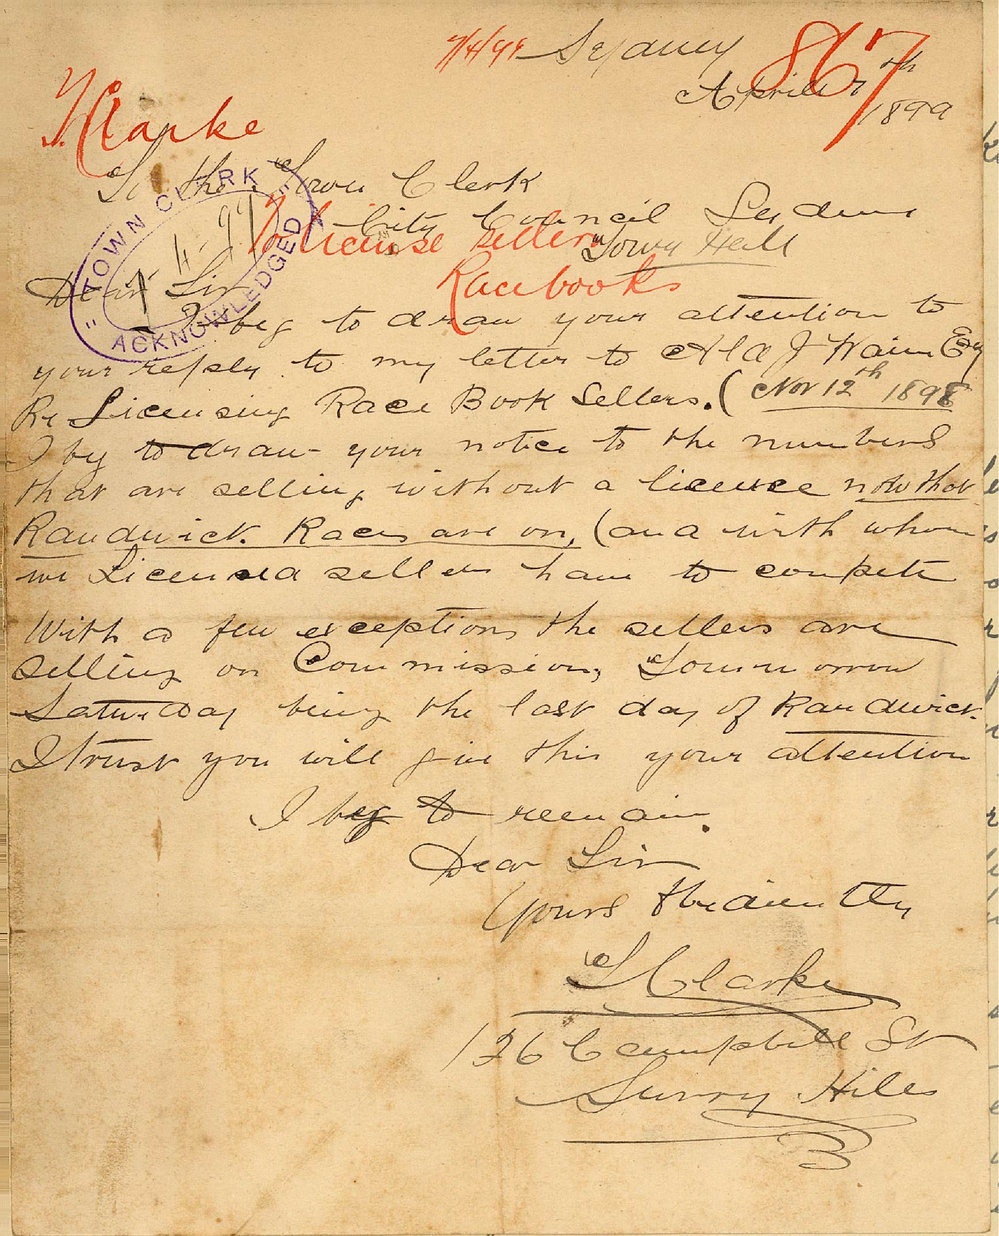 7/4/99 Sydney 867
April 7th
1899
T. Clarke
To the Town Clerk
City Council Sydney
Town Hall
To license sellers
Racebooks
"TOWN CLERK"
7-4-99
ACKNOWLEDGED
Dear Sir
I beg to draw your attention to
your reply to my letter to Ald J Waine Esq
Re Licensing Race Book Sellers. (Nov 12th 1898
I beg to draw your notice to the numbers
that are selling without a licence now that
Randwick Races are on, (and with whom
we Licensed sellers have to compete
With a few exceptions the sellers are
selling on Commission, Tomorrow
Saturday being the last day of Randwick.
I trust you will give this your attention
I beg to remain.
Dear Sir
Yours Obediently
T Clarke
126 Campbell St
Surry Hills